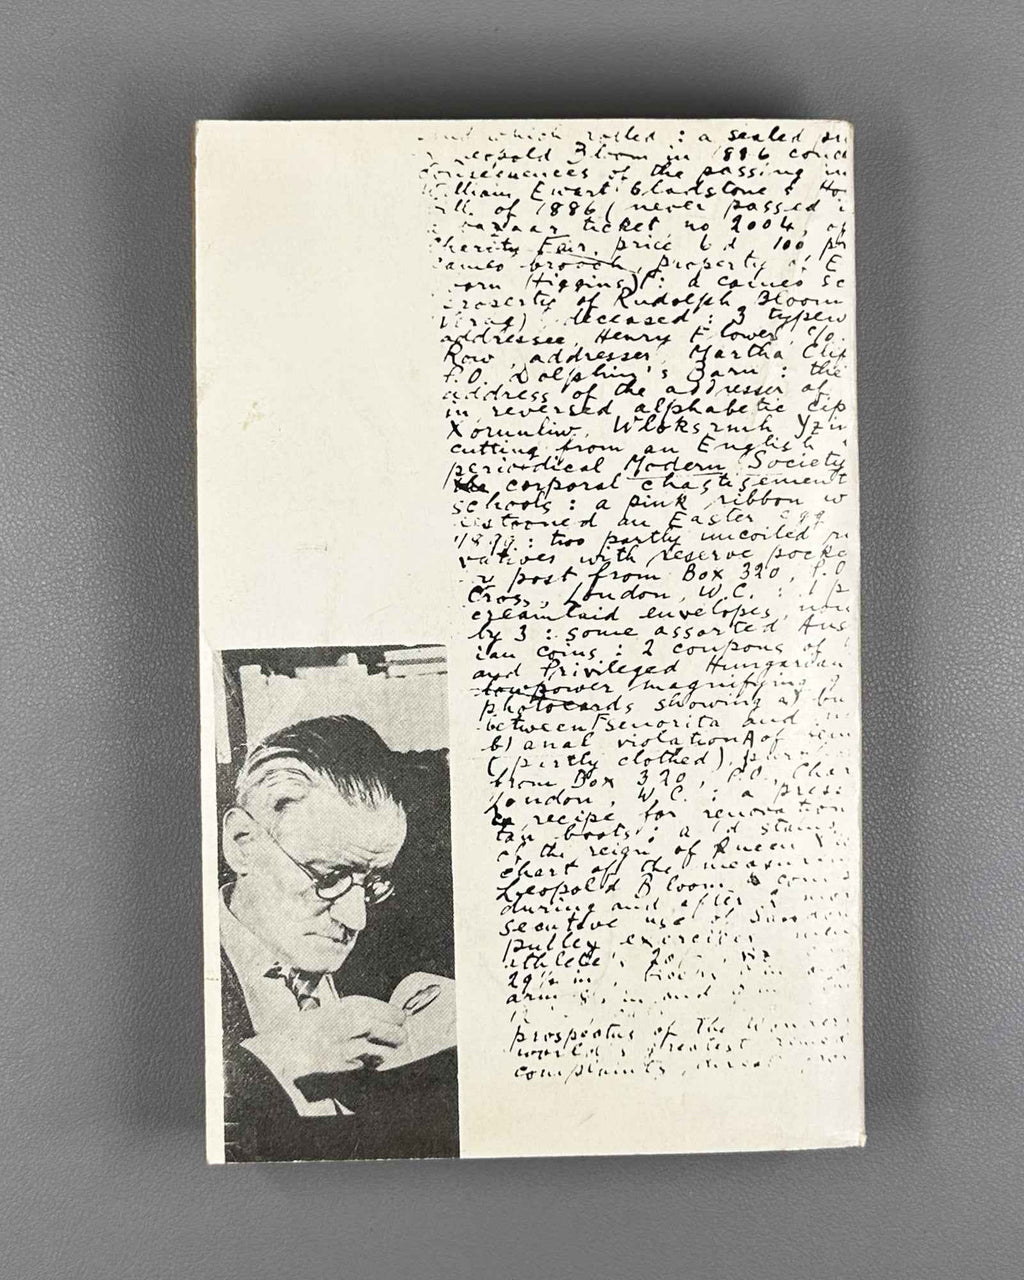 which rolled : a sealed
Leopold Bloom in 1886
consequences of the passing
William Ewart Gladstone's Ho
of 1886 (never passed
a bazaar ticket no 2004, of
Charity Fair, price 6 d 100
Cameo brooch, property of E
(Higgins) : a cameo sc
property of Rudolph Bloom
(Virag) deceased : 3 typew
addressee, Henry Flower, c/o.
Row, addresser, Martha Clif
P.O. Dolphin's Barn : the
address of the addresser of
in reversed alphabetic
cutting from an English
periodical Modern Society
the corporal chastisement
schools : a pink ribbon w
festooned an Easter egg
1899 : two partly uncoiled
vatives with reserve pocke
post from Box 320, P.O
Cross, London, W.C. : 1 p
creamlaid envelopes,
by 3 : some assorted Aus
ian coins : 2 coupons of
and Privileged Hungarian
lowpower magnifying
photocards showing a) bu
between señorita and
b) anal violation of
(partly clothed),
from Box 320, P.O., Char
London, W.C. : a press
recipe for renovation
tan boots : a 1d stamp
of the reign of Queen Vic
chart of the measurem
Leopold Bloom
during and after
secutive use of Sandow
pulley exerciser
athlete's 20/-
29½ in
arm in and
prospectus of The Wonder
world's greatest remed
complaints, direct